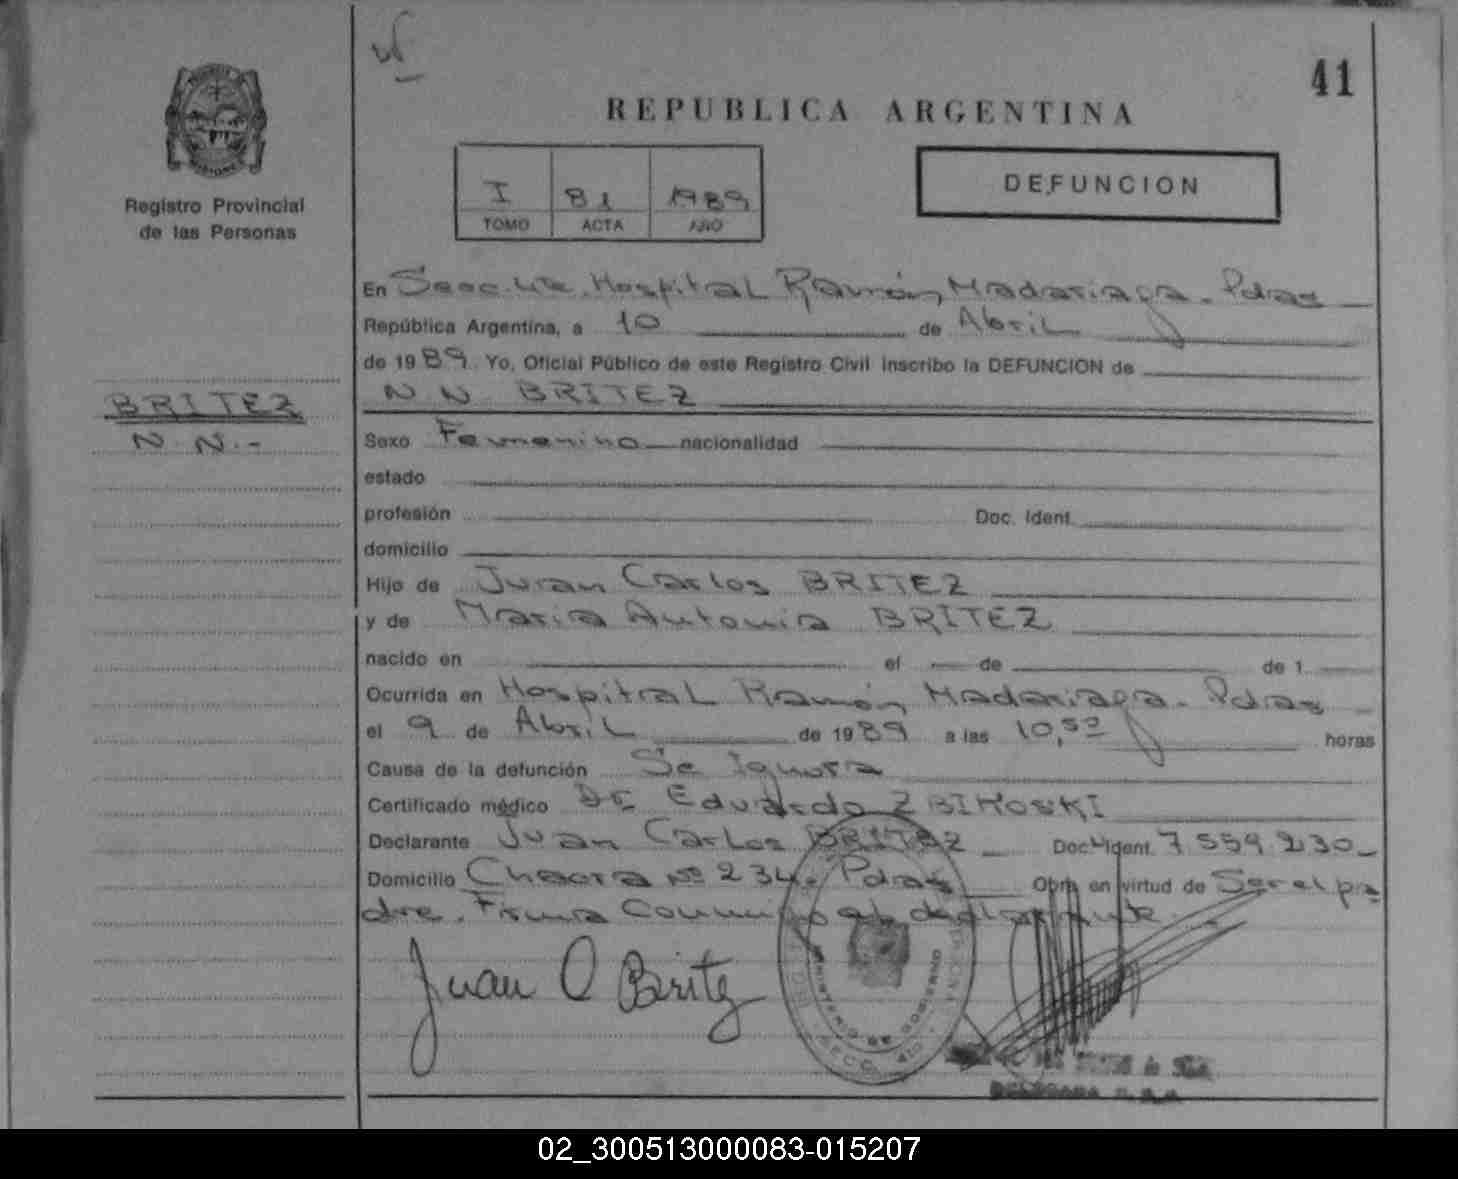 41
REPUBLICA ARGENTINA
MISIONES
Registro Provincial
de las Personas
I 81 1989
TOMO ACTA AÑO
DEFUNCION
En Secc. 4ta. Hospital Ramón Madariaga - Pdas
República Argentina, a 10 de Abril
de 1989 Yo, Oficial Público de este Registro Civil inscribo la DEFUNCION de
N N BRITEZ
BRITEZ
N. N.-
Sexo Femenino nacionalidad
estado
profesión Doc. Ident.
domicilio
Hijo de Juan Carlos BRITEZ
y de Maria Antonia BRITEZ
nacido en el de de 1
Ocurrida en Hospital Ramón Madariaga - Pdas
el 9 de Abril de 1989 a las 10,50 horas
Causa de la defunción Se Ignora
Certificado médico Dr Eduardo
Declarante Juan Carlos BRITEZ Doc. Ident. 7.559.230
Domicilio Chacra Nº 234 - Pdas Obra en virtud de Ser el pa
dre. Firma Conmigo el declarante.
Juan C Britez
MINISTERIO DE GOBIERNO
02_300513000083-015207